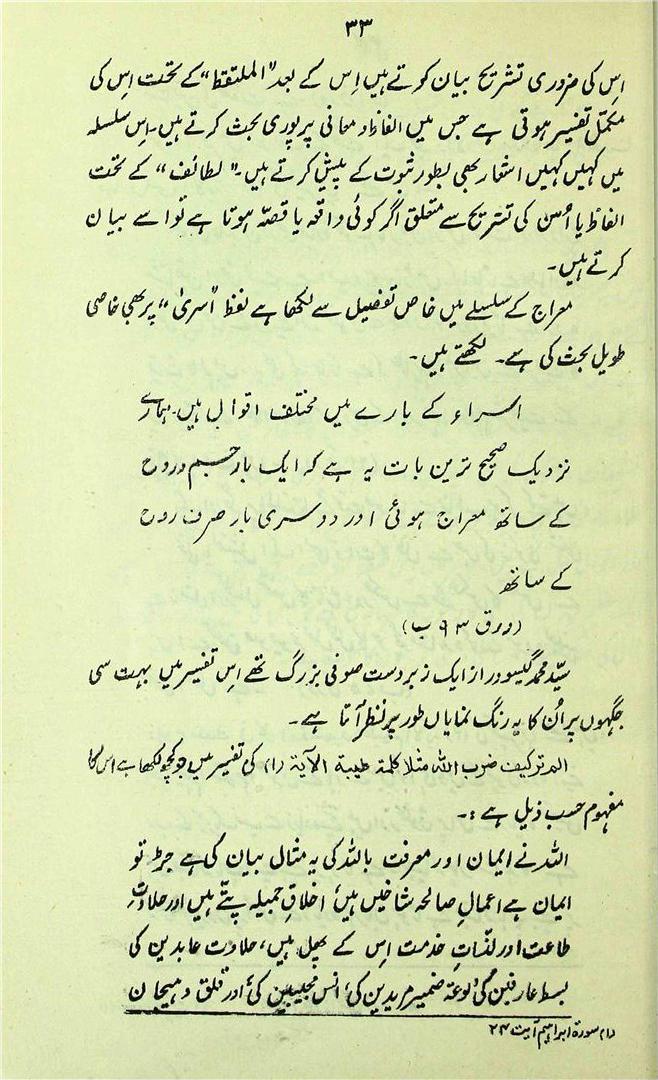 ۳۳
اس کی ضروری تشریح بیان کرتے ہیں اس کے بعد "الملتقط" کے تحت اس کی
مکمل تفسیر ہوتی ہے جس میں الفاظ و معانی پر پوری بحث کرتے ہیں۔ اس سلسلہ
میں کہیں کہیں اشعار بھی بطور ثبوت کے پیش کرتے ہیں۔ "لطائف" کے تحت
الفاظ یا اُس کی تشریح سے متعلق اگر کوئی واقعہ یا قصّہ ہوتا ہے تو اسے بیان
کرتے ہیں۔
معراج کے سلسلے میں خاص تفصیل سے لکھا ہے لفظ "اسریٰ" پر بھی خاصی
طویل بحث کی ہے۔ لکھتے ہیں۔
اسراء کے بارے میں مختلف اقوال ہیں۔ ہمارے
نزدیک صحیح ترین بات یہ ہے کہ ایک بار جسم و روح
کے ساتھ معراج ہوئی اور دوسری بار صرف روح
کے ساتھ
(ورق ۹۳ ب)
سیّد محمد گیسودراز ایک زبردست صوفی بزرگ تھے اس تفسیر میں بہت سی
جگہوں پر اُن کا یہ رنگ نمایاں طور پر نظر آتا ہے۔
الم تر کیف ضرب اللہ مثلا کلمۃ طیبۃ الآیۃ (۱) کی تفسیر میں جو کچھ لکھا ہے اس کا
مفہوم حسب ذیل ہے:۔
اللہ نے ایمان اور معرفت باللہ کی یہ مثال بیان کی ہے جڑ تو
ایمان ہے اعمالِ صالحہ شاخیں ہیں، اخلاقِ جمیلہ پتّے ہیں اور حلاوتِ
طاعت اور لذّاتِ خدمت اس کے پھل ہیں، حلاوت عابدین کی
بسط عارفین کی، لوعۃ ضمیر مریدین کی، انس محبیین کی، اور قلق و ہیجان
(۱) سورۃ ابراہیم آیت ۲۴